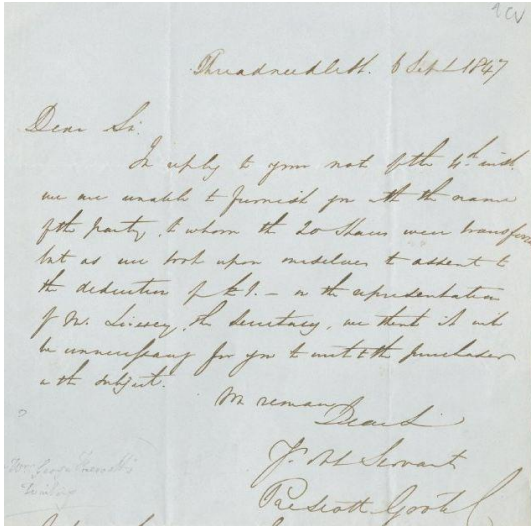 Threadneedle St. 6 Sept 1847
Dear Sir.
In reply to your note of the 4th inst.
we are unable to furnish you with the name
of the party, to whom the 20 Shares were transfer
but as we took upon ourselves to assent to
the deduction of the — on the representation
of Mr. the Secretary, we think it will
be unnecessary for you to write to the purchaser
on the subject.
We remain
Dear Sir
Yr. Obt Servant
Prescott